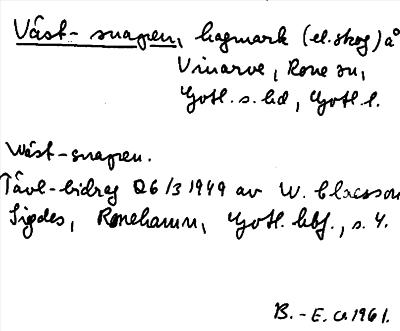 Väst-snagen, hagmark (el. skog) å
Vinarve, Rone sn,
Gotl. s. hd, Gotl. l.
Wäst-snagen.
Tävl-bidrag 26/3 1949 av W. Claesson
Sigdes, Ronehamn, Gotl. hbf., s. 4.
B.-E. 1961.